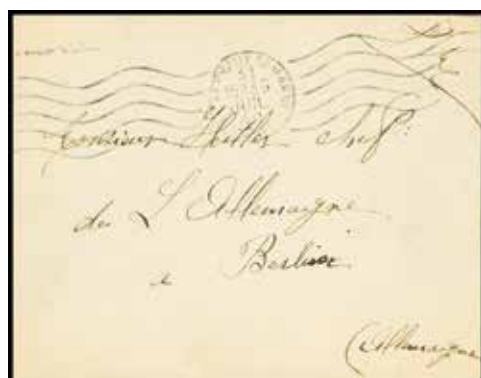 Monsieur Hitler Chef
de L'Allemagne
a Berlin
(Allemagne